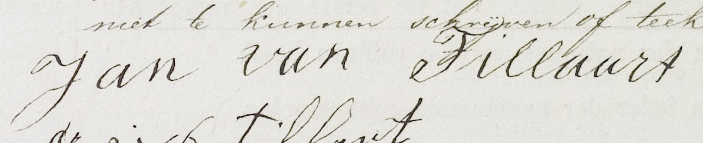 niet te kunnen schrijven of teek
Jan van Tillaart